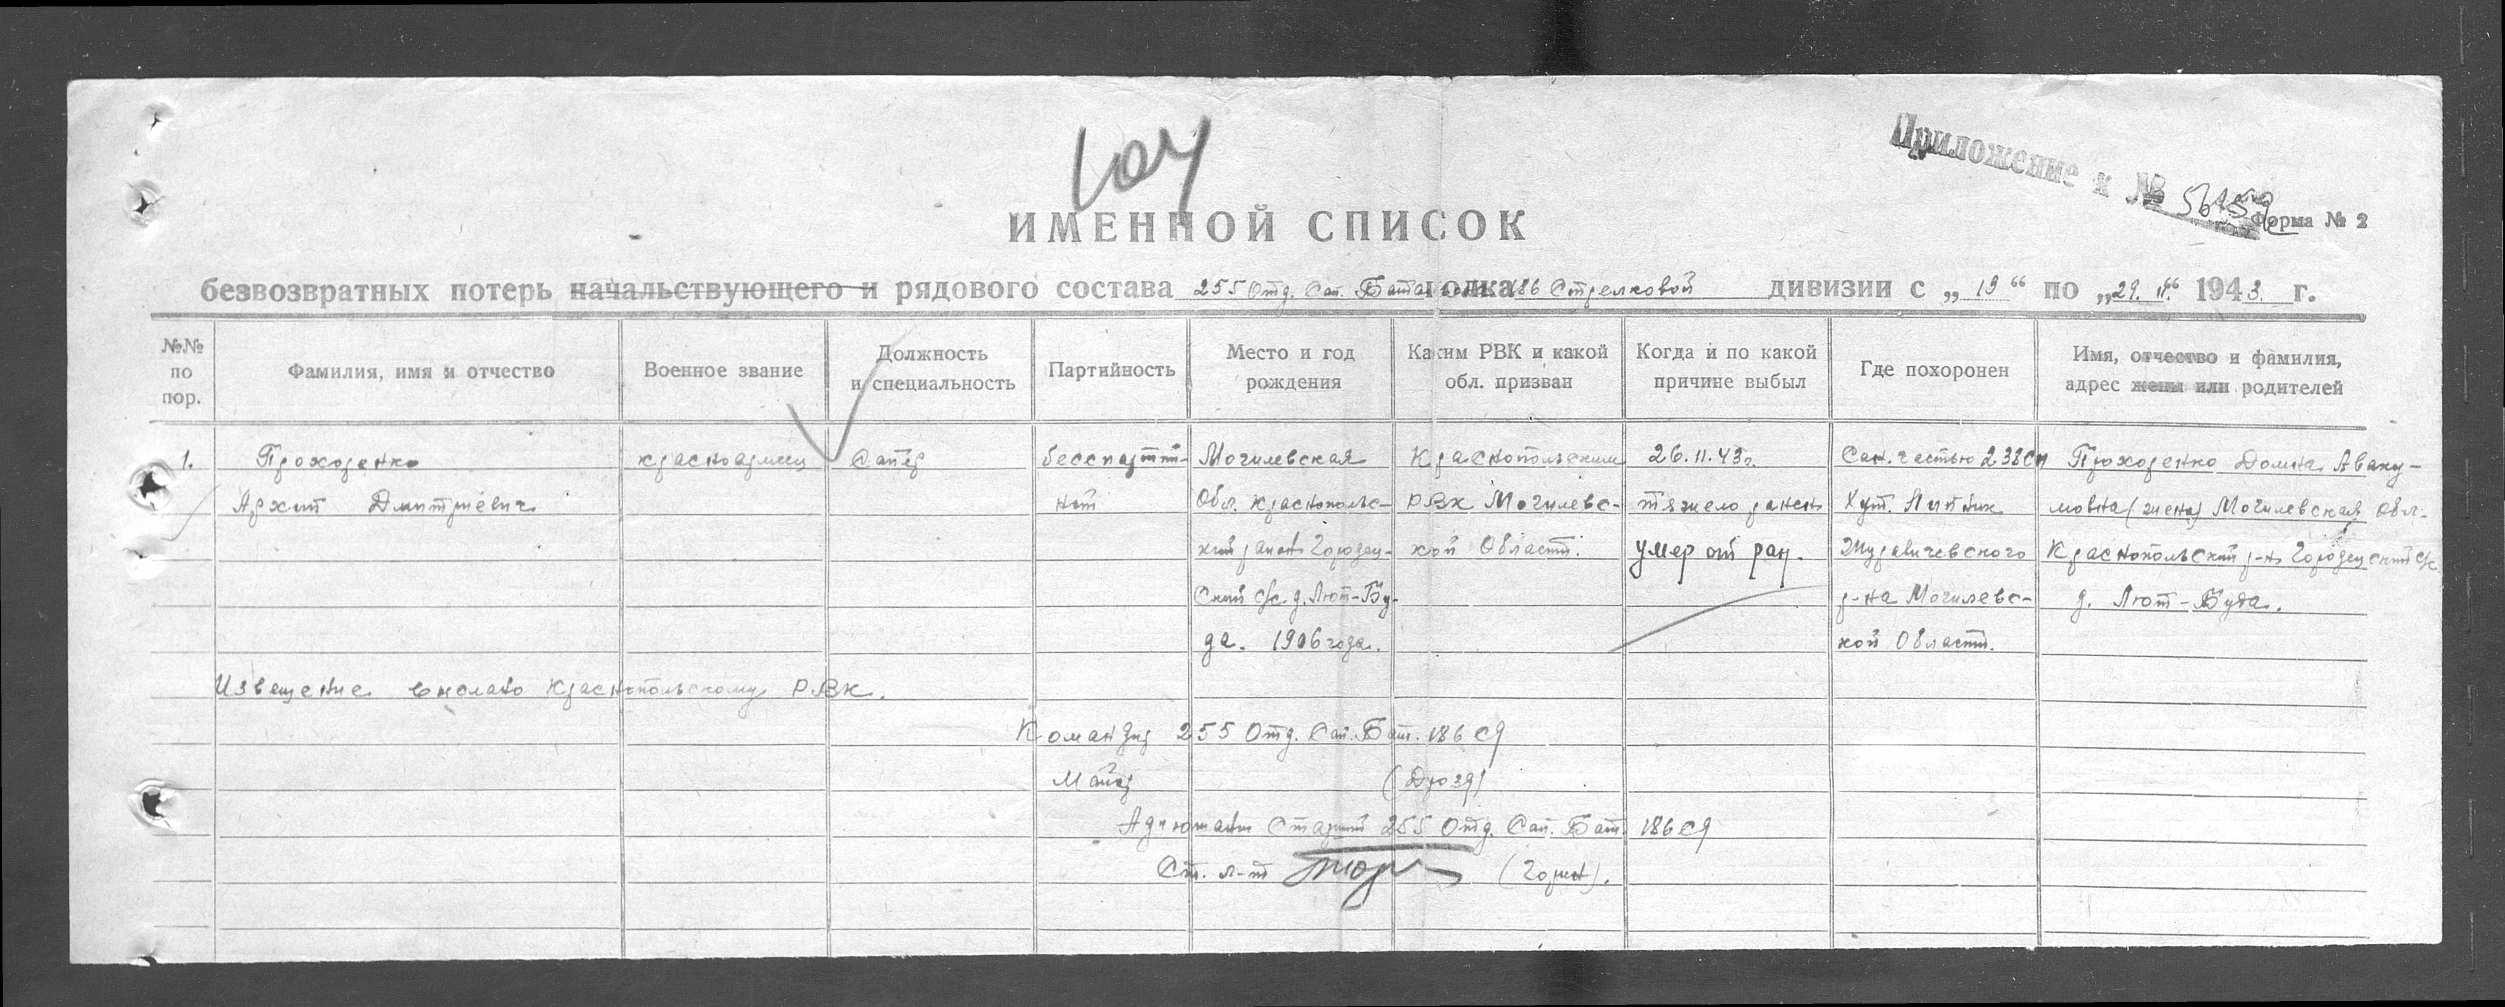 104
Приложение к №
Форма № 2
ИМЕННОЙ СПИСОК
безвозвратных потерь начальствующего и рядового состава 255 Отд. Сап. Батальона полка 186 Стрелковой дивизии с „ 19 “ по „ 29. 11. “ 1943. г.
№№ по пор.
Фамилия, имя и отчество
Военное звание
Должность и специальность
Партийность
Место и год рождения
Каким РВК и какой обл. призван
Когда и по какой причине выбыл
Где похоронен
Имя, отчество и фамилия, адрес жены или родителей
1. Проходенко красноармеец Сапёр беспартий- Могилевская Краснопольским 26.11.43г. Сан. частью 238сп Проходенко Домна Аваку-
Архип Дмитриевич ный Обл. Краснопольс- РВК Могилевс- тяжело ранен Хут. Липняк мовна (жена) Могилевская Обл.
кий район Городец- кой Области. умер от ран. Журавичевского Краснопольский р-н Городецкий с/с
ский с/с. д. Лют-Бу- р-на Могилевс- д. Лют-Буда.
да. 1906 года. кой Области.
Извещение выслано Краснопольскому РВК.
Командир 255 Отд. Сап. Бат. 186 сд
Майор (Дрозд)
Адъютант Старший 255 Отд. Сап. Бат. 186 сд
Ст. л-т (Горин).